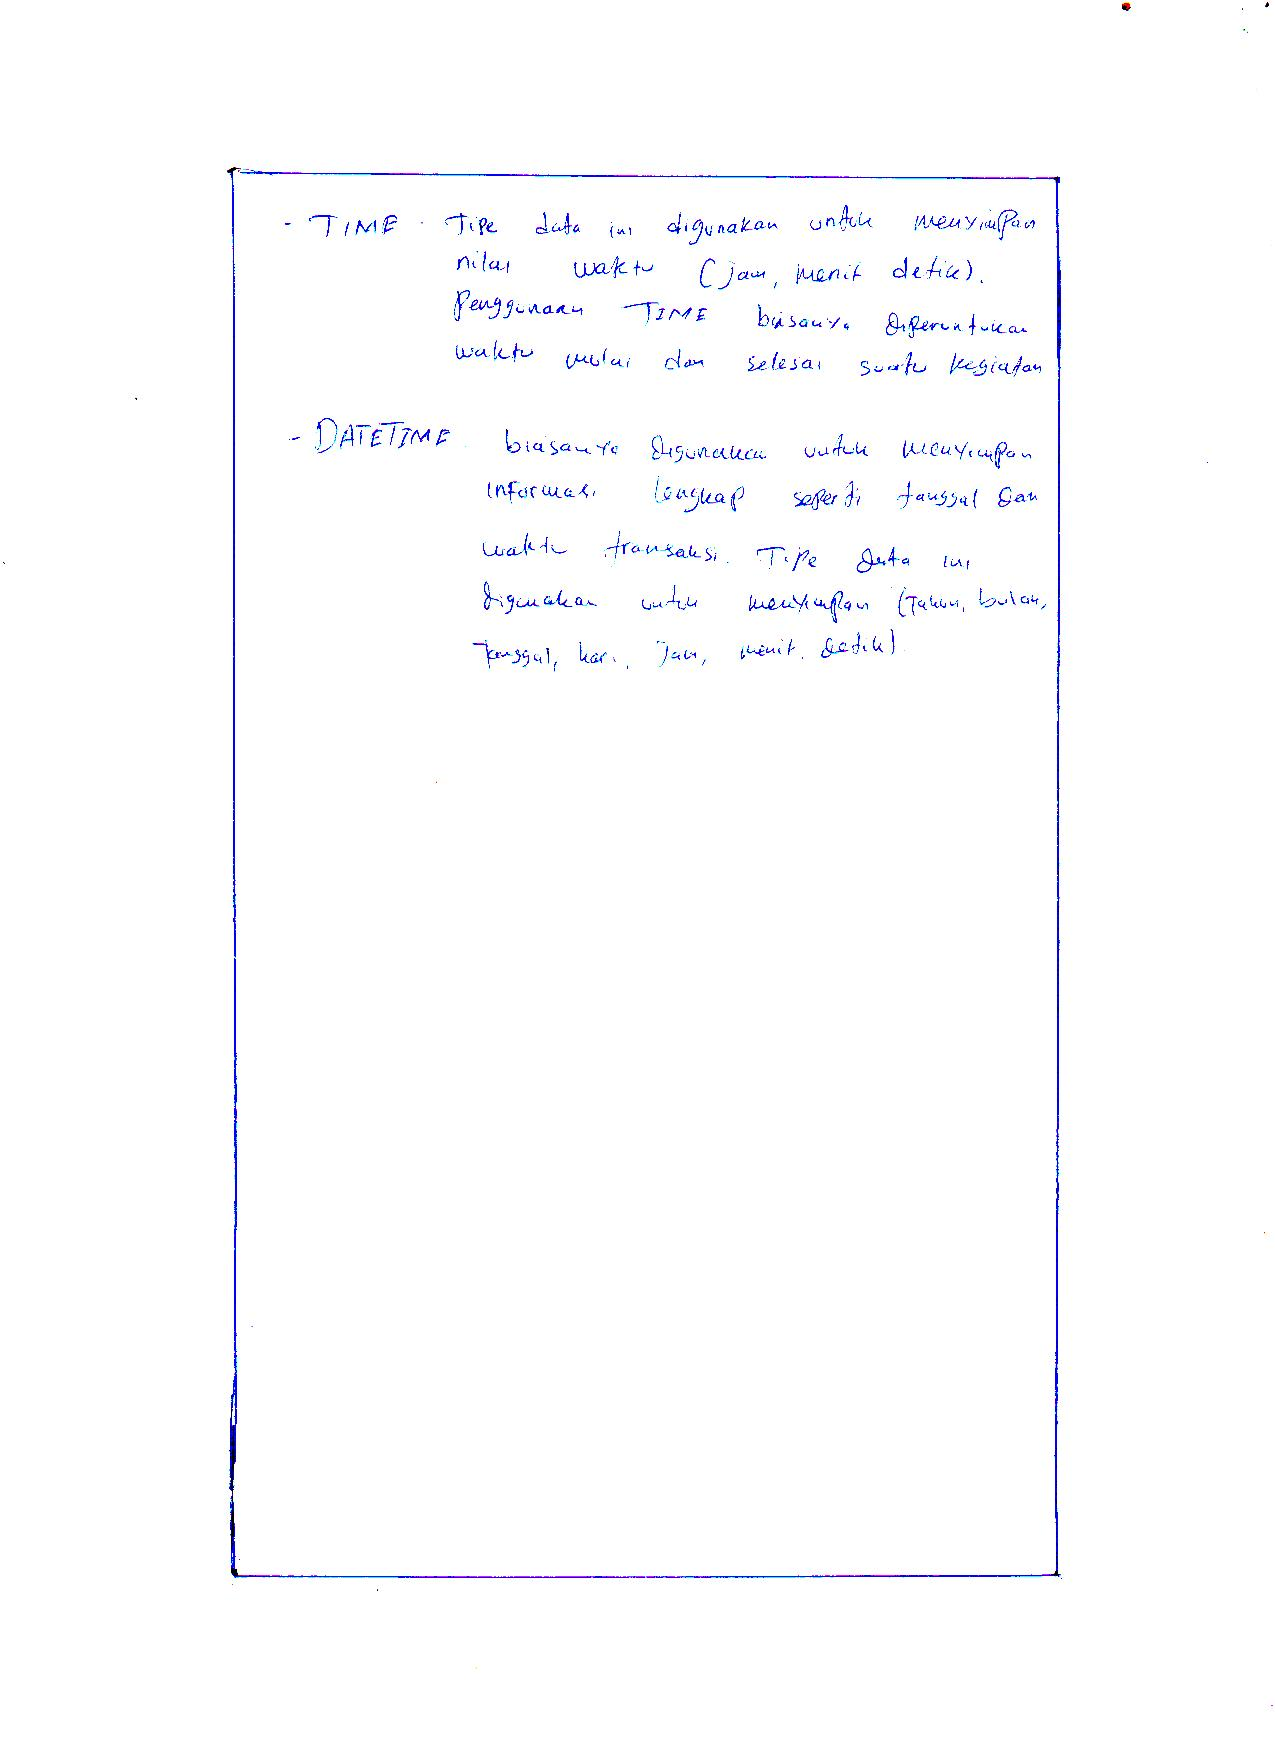 - TIME : Tipe data ini digunakan untuk menyimpan
nilai waktu (jam, menit detik).
Penggunaan TIME biasanya diperuntukan
waktu mulai dan selesai suatu kegiatan
- DATETIME biasanya digunakan untuk menyimpan
informasi lengkap seperti tanggal dan
waktu transaksi. Tipe data ini
digunakan untuk menyimpan (Tahun, bulan,
tanggal, hari, jam, menit, detik)